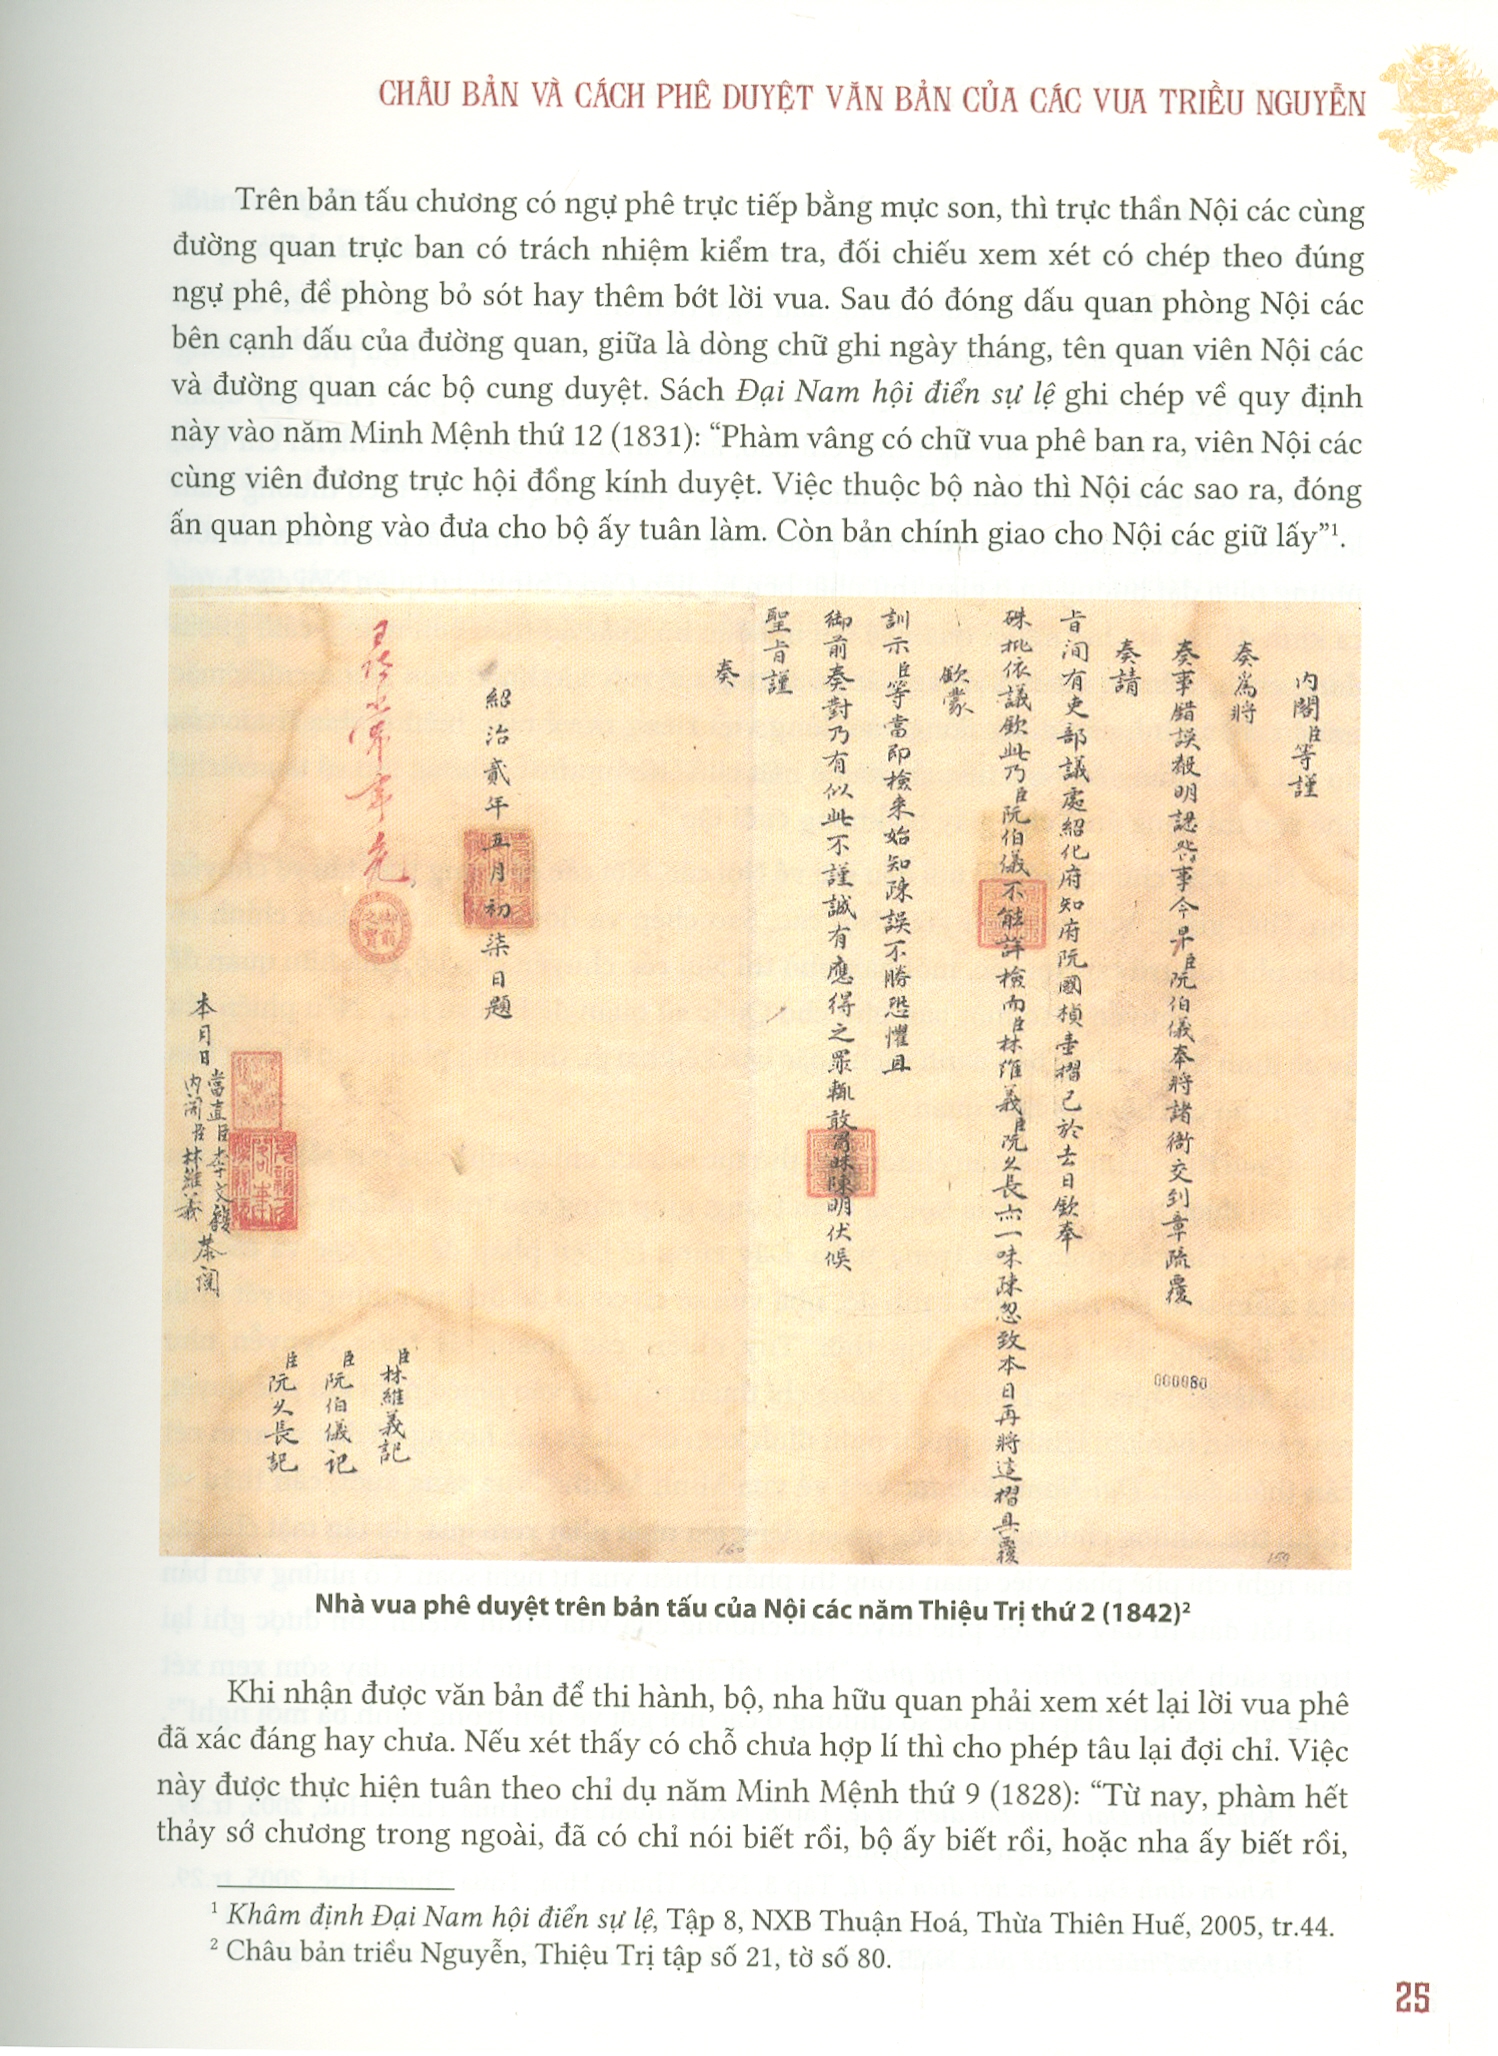 CHÂU BẢN VÀ CÁCH PHÊ DUYỆT VĂN BẢN CỦA CÁC VUA TRIỀU NGUYỄN
Trên bản tấu chương có ngự phê trực tiếp bằng mực son, thì trực thần Nội các cùng
đường quan trực ban có trách nhiệm kiểm tra, đối chiếu xem xét có chép theo đúng
ngự phê, đề phòng bỏ sót hay thêm bớt lời vua. Sau đó đóng dấu quan phòng Nội các
bên cạnh dấu của đường quan, giữa là dòng chữ ghi ngày tháng, tên quan viên Nội các
và đường quan các bộ cung duyệt. Sách Đại Nam hội điển sự lệ ghi chép về quy định
này vào năm Minh Mệnh thứ 12 (1831): “Phàm vâng có chữ vua phê ban ra, viên Nội các
cùng viên đương trực hội đồng kính duyệt. Việc thuộc bộ nào thì Nội các sao ra, đóng
ấn quan phòng vào đưa cho bộ ấy tuân làm. Còn bản chính giao cho Nội các giữ lấy”¹.
内閣臣等謹
奏爲將
奏事錯誤殺明認咎事今早臣阮伯儀奉將諸衙交到章疏覆
奏請
旨間有吏部議處紹化府知府阮國楨壹摺已於去日欽奉
硃批依議欽此乃臣阮伯儀不能詳檢而臣林維義臣阮久長亦一味疎忽致本日再將這摺具覆
欽蒙
訓示臣等當即檢来始知疎誤不勝恐懼且
御前奏對乃有似此不謹誠有應得之罪輒敢冒昧陳明伏候
聖旨謹
奏
紹治貳年五月初柒日題
御前之寶
臣林維義記
臣阮伯儀記
臣阮久長記
本月日當直臣李文馥
内閣臣林維義恭閲
000080
160
159
Nhà vua phê duyệt trên bản tấu của Nội các năm Thiệu Trị thứ 2 (1842)²
Khi nhận được văn bản để thi hành, bộ, nha hữu quan phải xem xét lại lời vua phê
đã xác đáng hay chưa. Nếu xét thấy có chỗ chưa hợp lí thì cho phép tâu lại đợi chỉ. Việc
này được thực hiện tuân theo chỉ dụ năm Minh Mệnh thứ 9 (1828): “Từ nay, phàm hết
thảy sớ chương trong ngoài, đã có chỉ nói biết rồi, bộ ấy biết rồi, hoặc nha ấy biết rồi,
¹ Khâm định Đại Nam hội điển sự lệ, Tập 8, NXB Thuận Hoá, Thừa Thiên Huế, 2005, tr.44.
² Châu bản triều Nguyễn, Thiệu Trị tập số 21, tờ số 80.
25